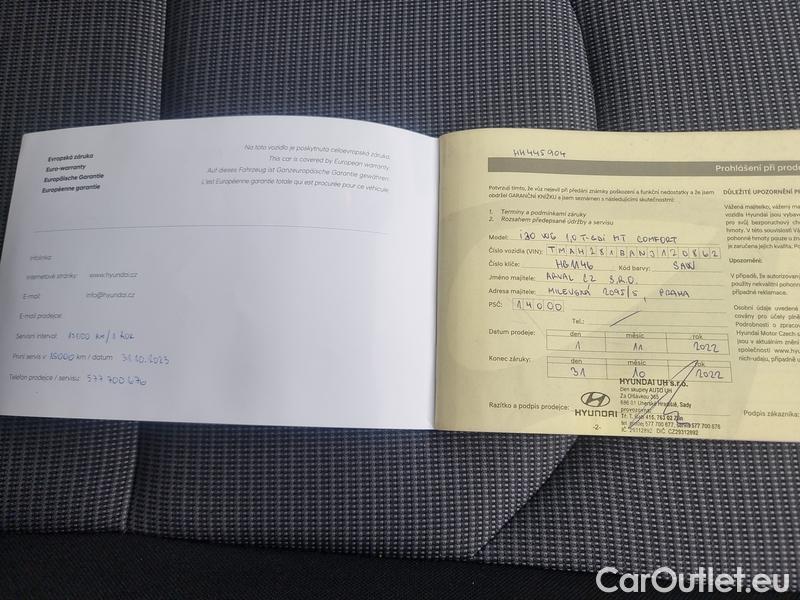 Evropská záruka
Euro-warranty
Europäische Garantie
Européenne garantie
Na toto vozidlo je poskytnuta celoevropská záruka.
This car is covered by European warranty.
Auf dieses Fahrzeug ist Ganzeuropäische Garantie gewähren.
L'est Européenne garantie totale qui est procurée pour ce véhicule.
Infolinka:
Internetové stránky: www.hyundai.cz
E-mail: info@hyundai.cz
E-mail prodejce:
Servisní interval: 15000 km / 1 ROK
První servis v 15000 km / datum 31.10.2023
Telefon prodejce / servisu: 577 700 676
HH445904
Prohlášení při prode
Potvrzuji tímto, že vůz nejevil při předání známky poškození a funkční nedostatky a že jsem
obdržel GARANČNÍ KNÍŽKU a jsem seznámen s následujícími skutečnostmi:
1. Termíny a podmínkami záruky
2. Rozsahem předepsané údržby a servisu
Model: i30 WG 1,0 T-GDI MT COMFORT
Číslo vozidla (VIN): TMAH281BANJ120862
Číslo klíče: HB1146 Kód barvy: SAW
Jméno majitele: ARVAL CZ S.R.O.
Adresa majitele: MILEVSKÁ 2095/5, PRAHA
PSČ: 14000
Tel.:
Datum prodeje: den měsíc rok
1 11 2022
Konec záruky: den měsíc rok
31 10 2022
Razítko a podpis prodejce:
HYUNDAI
HYUNDAI UH s.r.o.
člen skupiny AUTO UH
Za Olšávkou 365
686 01 Uherské Hradiště, Sady
provozovna:
Tř. T. Bati 415, 763 02 Zlín
tel. prodej 577 700 677, servis 577 700 676
IČ 29312892 DIČ CZ29312892
-2-
DŮLEŽITÉ UPOZORNĚNÍ PR
Vážená majitelko, vážený ma
vozidla Hyundai jsou vybav
pro svůj bezporuchový ch
hmoty. V této souvislosti Vá
pohonné hmoty pouze u zna
je zaručena jejich kvalita. Po
Upozornění:
V případě, že autorizovaný
použity nekvalitní pohonn
případné reklamace.
Osobní údaje uvedené
covány pro účely plně
Podrobnosti o zpracov
Hyundai Motor Czech s
jsou v aktuálním znění
společnosti www.hy
ních-udaju, případně u
Podpis zákazníka:
CarOutlet.eu